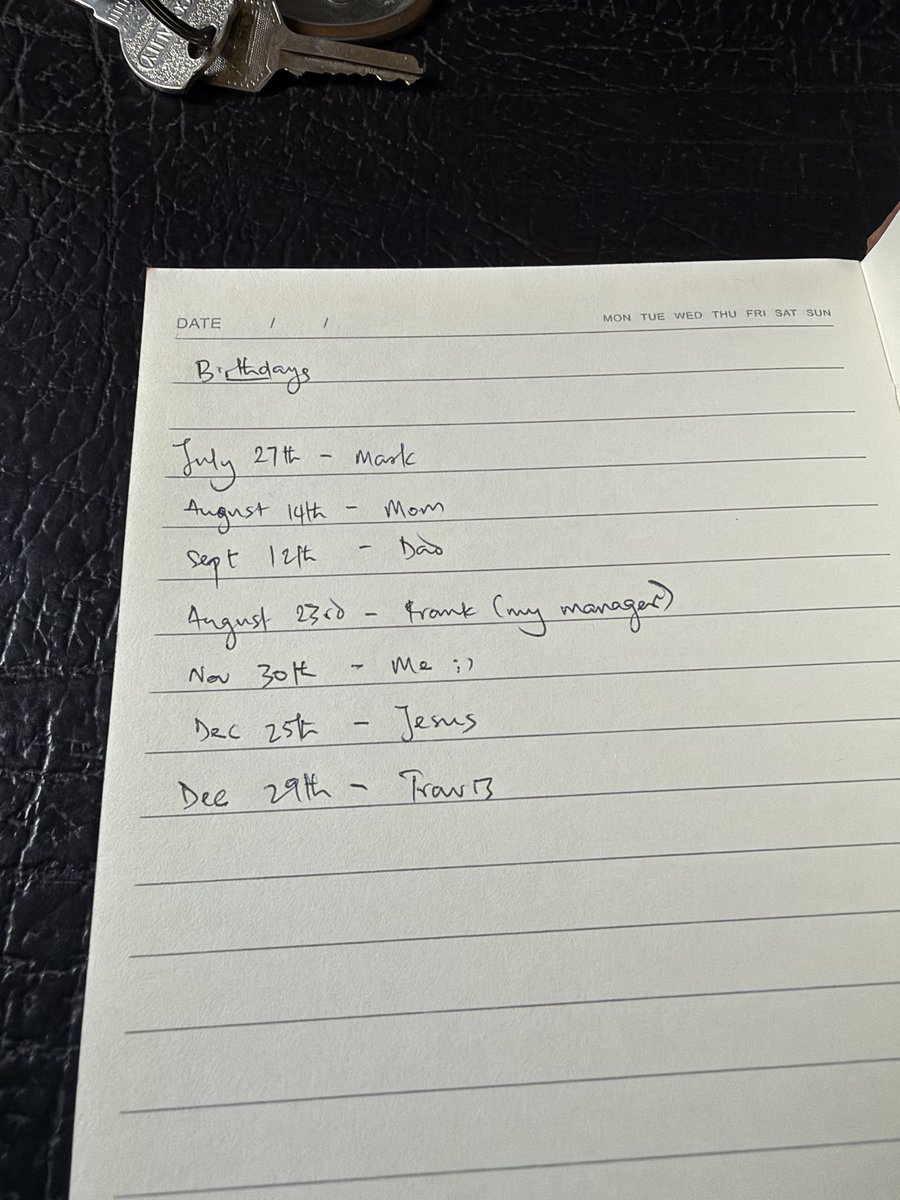 DATE / / MON TUE WED THU FRI SAT SUN
Birthdays
July 27th - Mark
August 14th - Mom
Sept 12th - Dad
August 23rd - Frank (my manager)
Nov 30th - Me :)
Dec 25th - Jesus
Dec 29th - Travis